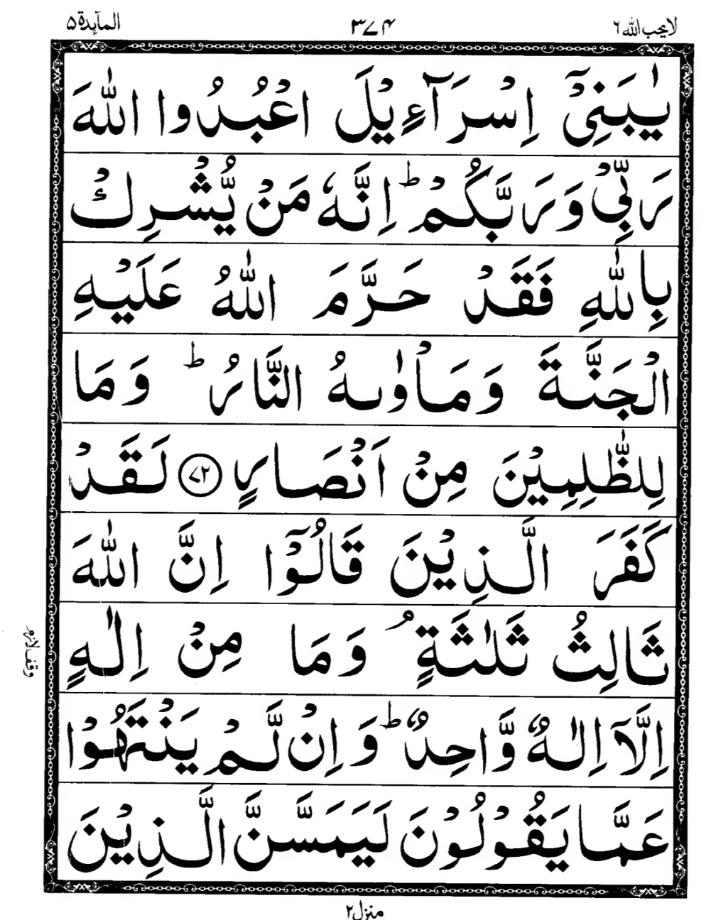 لایحب الله ٦ ۳۷۴ المآىِٕدة ۵
یٰبَنِیْۤ اِسْرَآءِیْلَ اعْبُدُوا اللّٰهَ
رَبِّیْ وَرَبَّكُمْ ؕ اِنَّهٗ مَنْ یُّشْرِكْ
بِاللّٰهِ فَقَدْ حَرَّمَ اللّٰهُ عَلَیْهِ
الْجَنَّةَ وَمَاْوٰىهُ النَّارُ ؕ وَمَا
لِلظّٰلِمِیْنَ مِنْ اَنْصَارٍ ﴿۷۲﴾ لَقَدْ
كَفَرَ الَّذِیْنَ قَالُوْۤا اِنَّ اللّٰهَ
ثَالِثُ ثَلٰثَةٍ ۘ وَمَا مِنْ اِلٰهٍ
وقف لازم
اِلَّاۤ اِلٰهٌ وَّاحِدٌ ؕ وَاِنْ لَّمْ یَنْتَهُوْا
عَمَّا یَقُوْلُوْنَ لَیَمَسَّنَّ الَّذِیْنَ
منزل ۲